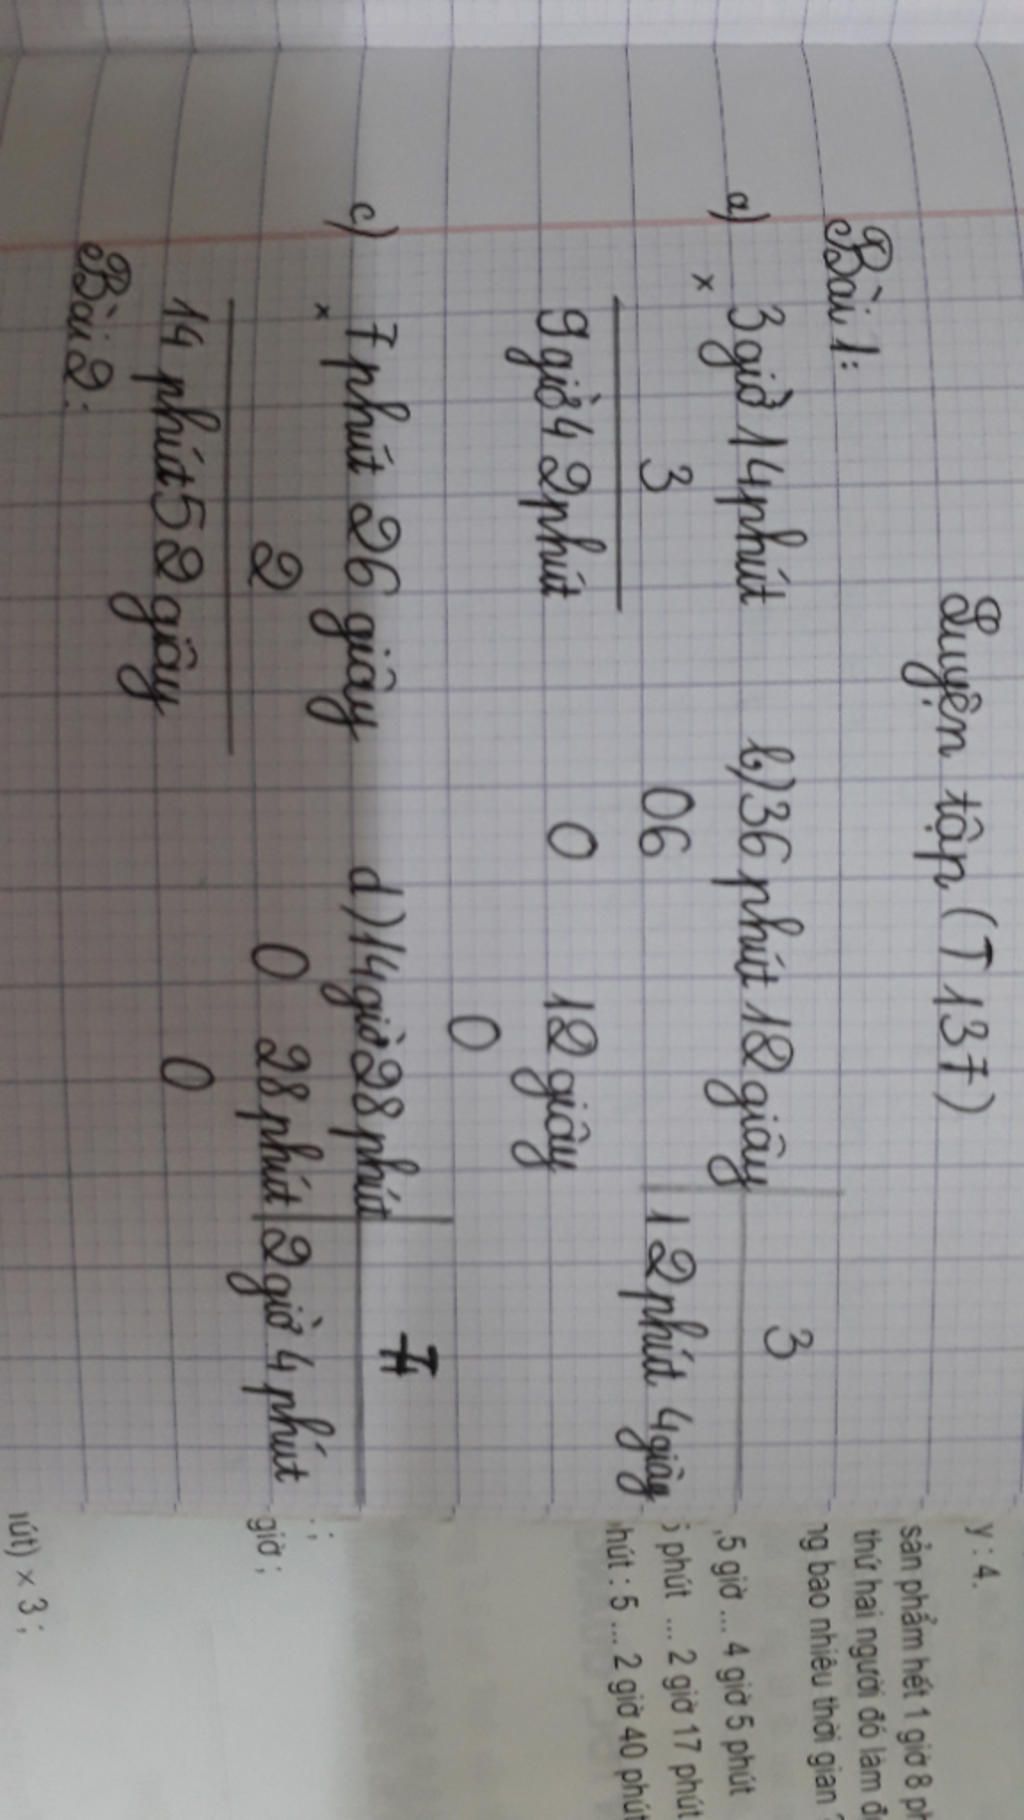 Luyện tập (T 137)
Bài 1:
a) 3 giờ 14 phút
×
3
9 giờ 42 phút
b) 36 phút 12 giây
3
06
12 phút 4 giây
0
12 giây
0
c) 7 phút 26 giây
×
2
14 phút 52 giây
d) 14 giờ 28 phút
7
0
28 phút
2 giờ 4 phút
0
Bài 2:
y : 4.
sản phẩm hết 1 giờ 8
thứ hai người đó làm
bao nhiêu thời gian
,5 giờ ... 4 giờ 5 phút
phút ... 2 giờ 17 phút
: 5 ... 2 giờ 40
;
giờ ;
) × 3 ;